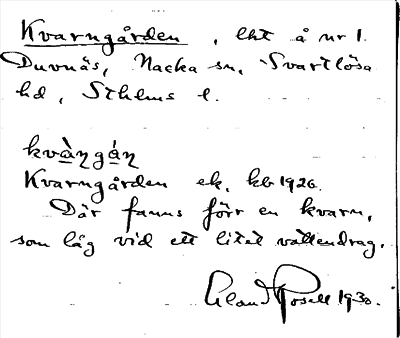 Kvarngården, lht å nr 1.
Duvnäs, Nacka sn, Svartlösa
hd, Sthlms l.
kvàŋgáŋ
Kvarngården ek. kb 1926.
Där fanns förr en kvarn,
som låg vid ett litet vattendrag.
Rosell 1930.